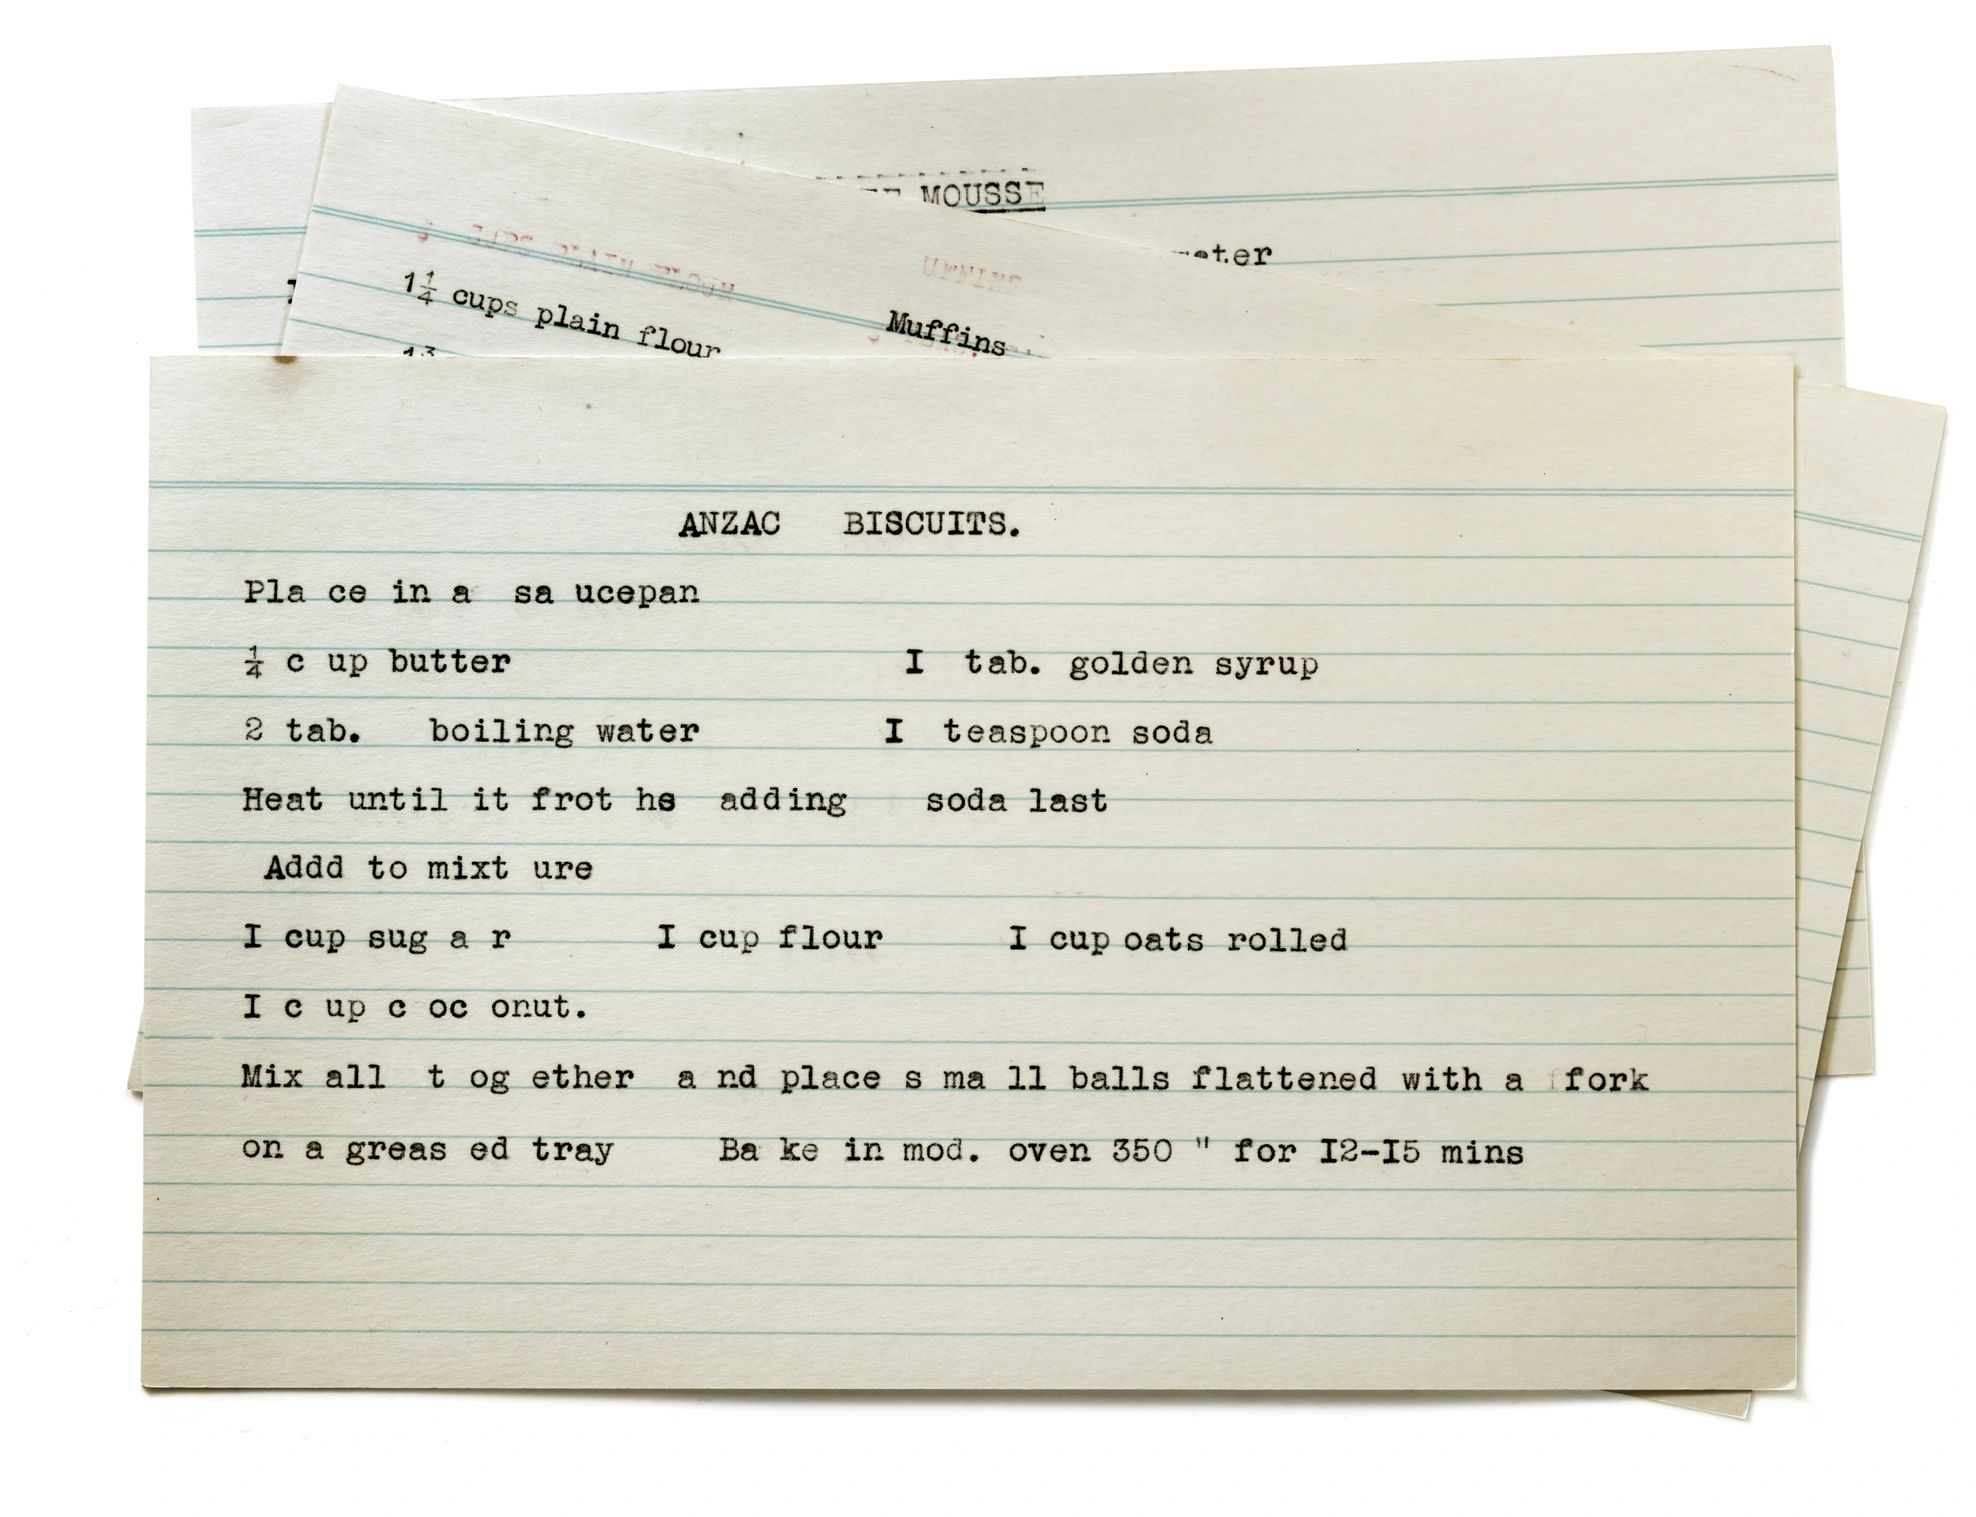 MOUSSE
1¼ cups plain flour
Muffins
ANZAC BISCUITS.
Pla ce in a sa ucepan
¼ c up butter I tab. golden syrup
2 tab. boiling water I teaspoon soda
Heat until it frot hs adding soda last
Addd to mixt ure
I cup sug a r I cup flour I cup oats rolled
I c up c oc onut.
Mix all t og ether a nd place s ma ll balls flattened with a fork
on a greas ed tray Ba ke in mod. oven 350 " for I2-I5 mins